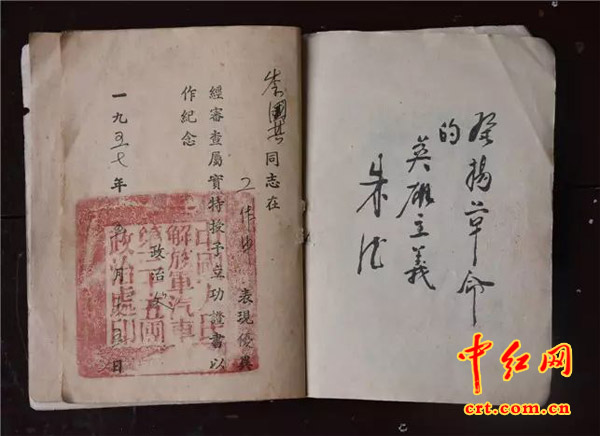 發揚革命
的
英雄主義
朱德
李國其同志在
工作中 表現優異
經審查屬實特授予立功證書以
作紀念
政治處
一九五七年 月 日
中國人民
解放軍汽車
第二十五團
政治處印
中红网
crt.com.cn